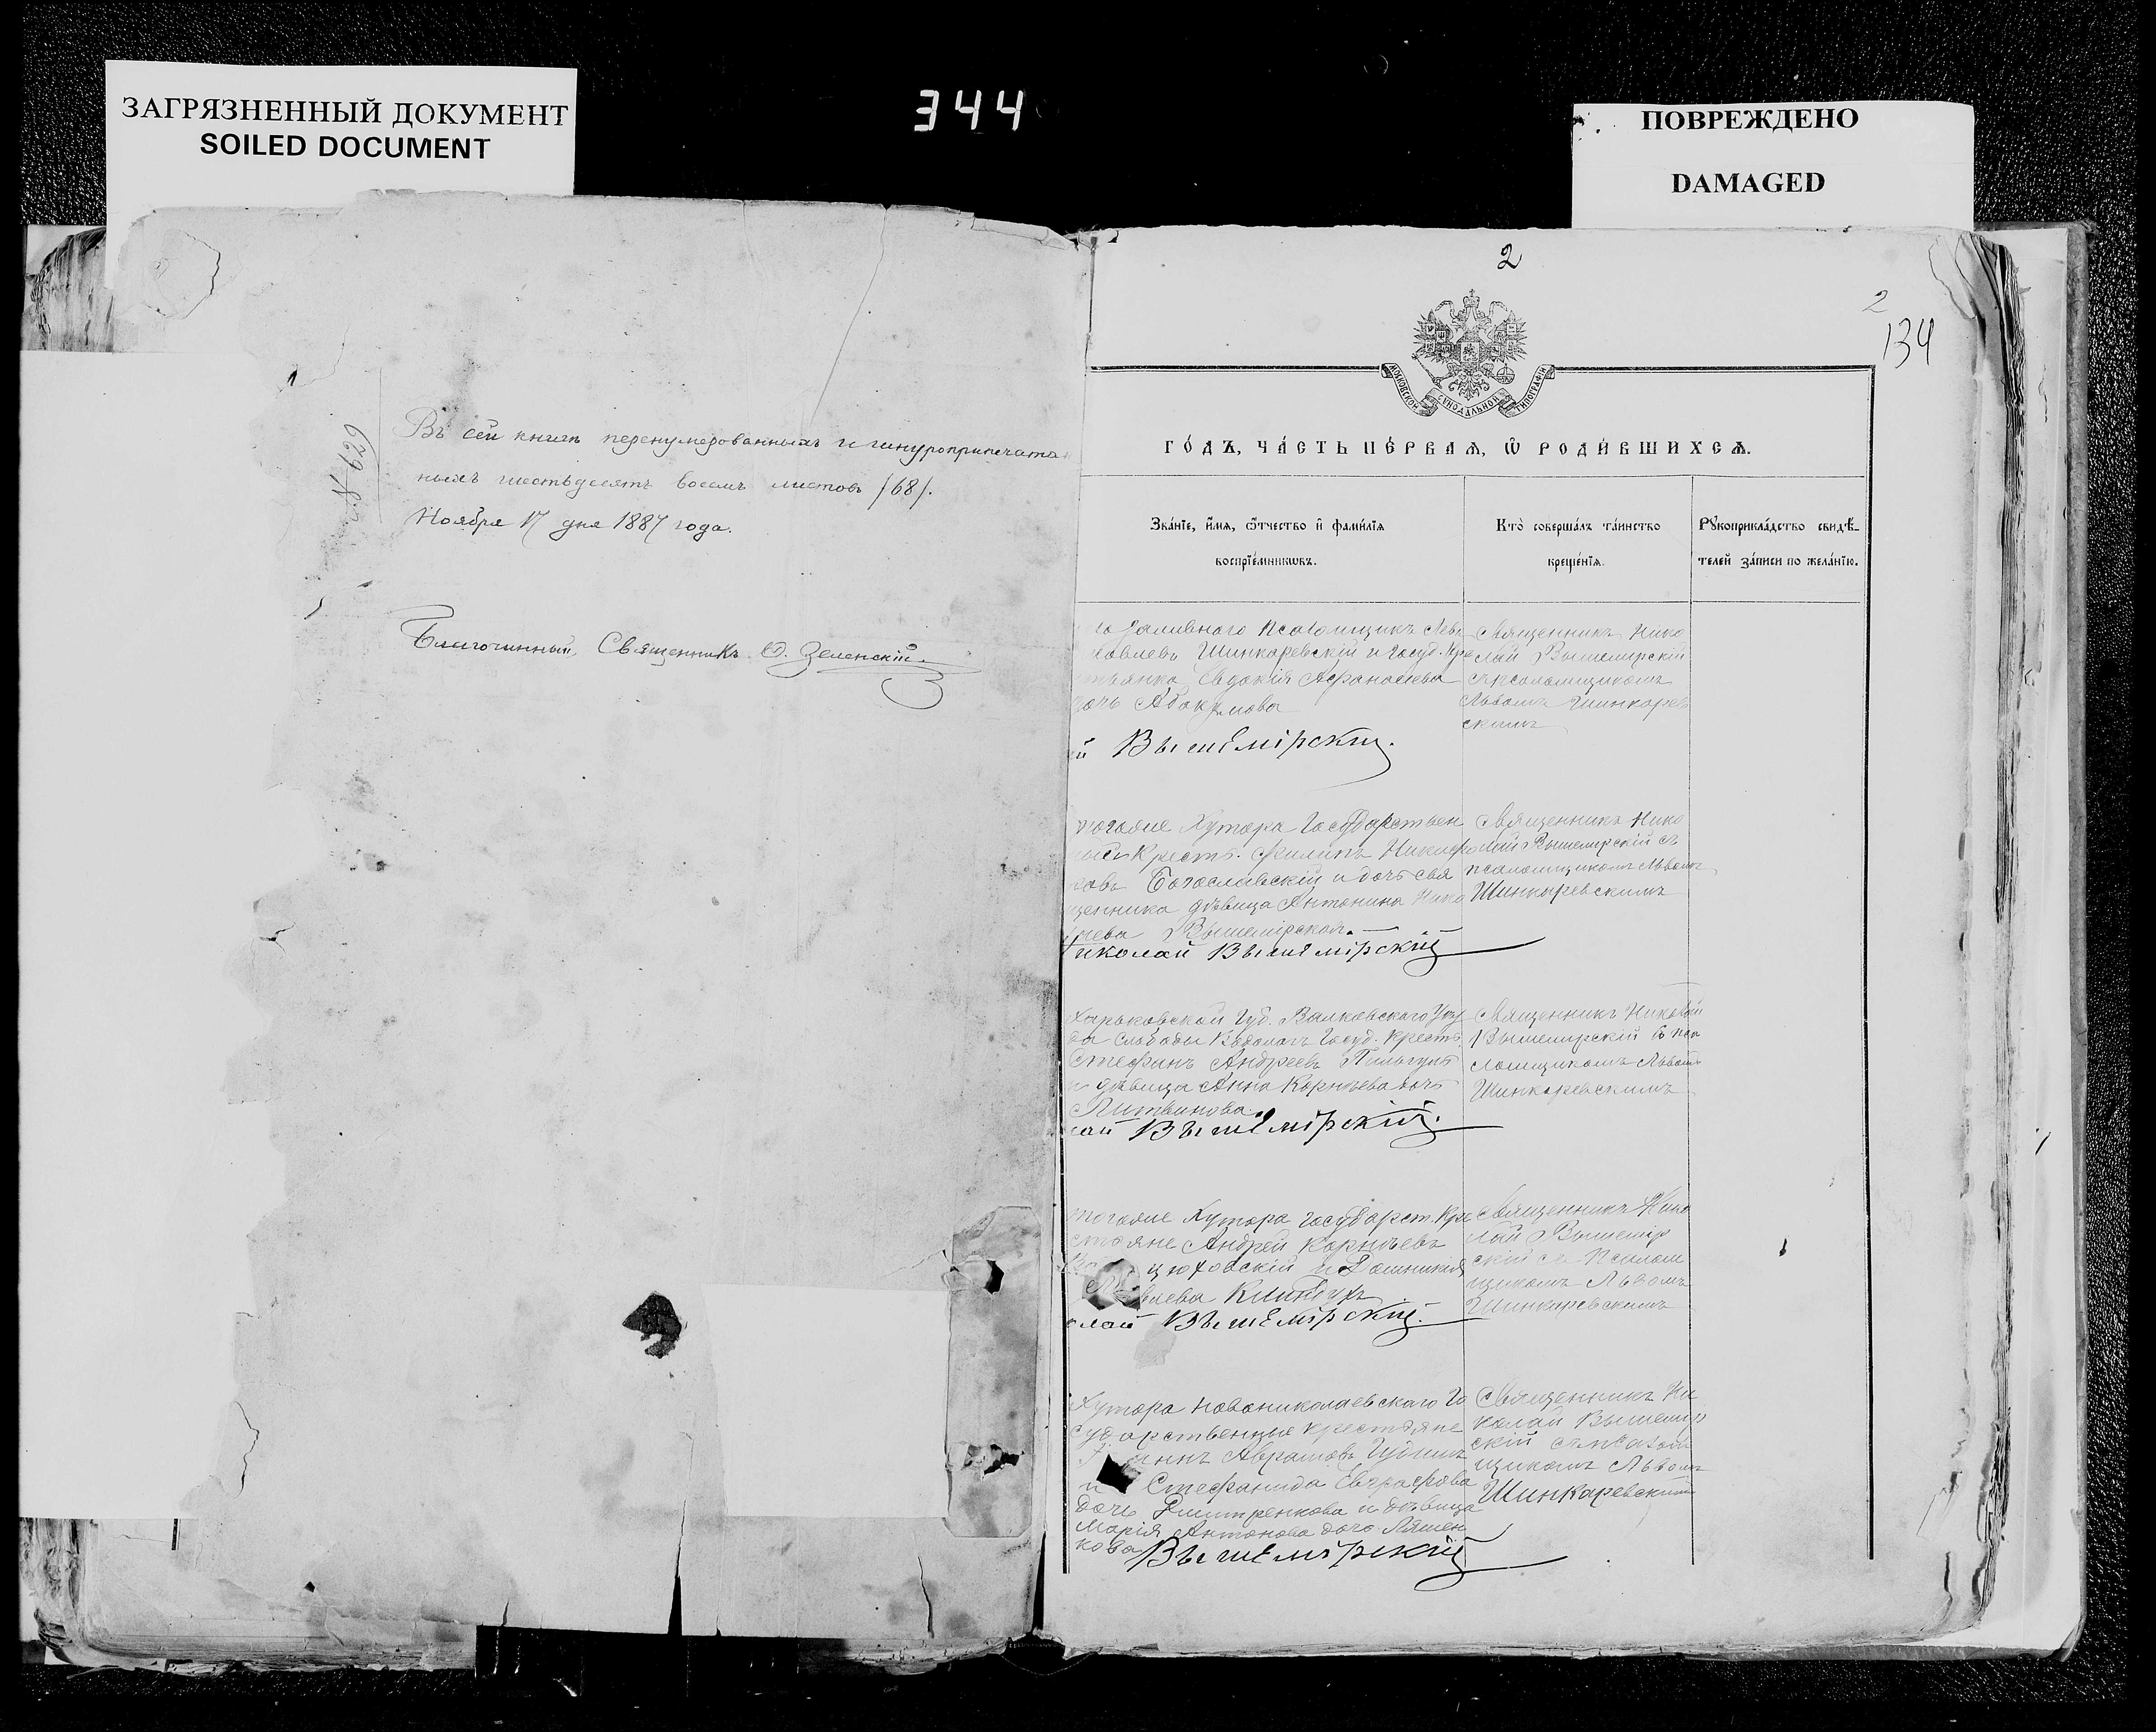 ЗАГРЯЗНЕННЫЙ ДОКУМЕНТ
SOILED DOCUMENT
344
ПОВРЕЖДЕНО
DAMAGED
№ 629
Въ сей книгѣ перенумерованныхъ и шнуроприпечата
ныхъ шестьдесятъ восемь листовъ /68/.
Ноября 17 дня 1887 года.
Благочинный, Священникъ Ѳ. Зеленскій
2
2
134
МОСКОВСКОЙ СѴНОДАЛЬНОЙ ТИПОГРАФІИ
ГО́ДЪ, ЧА́СТЬ ПЕ́РВАѦ, Ѽ РОДИ́ВШИХСѦ.
Зва́нїе, и҆́мѧ, ѻ҆́тчество и҆ фами́лїѧ
воспрїе́мникѡвъ.
Кто̀ соверша́лъ та́инство
креще́нїѧ.
Рꙋкоприкла́дство свидѣ́-
телей за́писи по жела́нїю.
Псаломщикъ
Шинкаревскій и Госуд. Кре
Евдокія Афанасіева
Абакумова
й Вышемірскій.
Священникъ Нико
лай Вышемирскій
съ псаломщикомъ
Львомъ Шинкарев
скимъ
Хутора Государствен
Крест. Филипъ Никифо
ровъ Богославскій и дочь свя
щенника дѣвица Антонина Нико
лаева Вышемірская.
Николай Вышемірскій
Священникъ Нико
лай Вышемирскій съ
псаломщикомъ Львомъ
Шинкаревскимъ
Харьковской Губ. Валковского Уѣз
да Слободы Госуд. Крест.
Стефанъ Андреевъ
и дѣвица Анна Корнѣева дочь
Литвинова
лай Вышемірскій.
Священникъ Николай
Вышемирскій съ пса
ломщикомъ Львомъ
Шинкаревскимъ
Хутора Государст. Кре
стьяне Андрей Корнѣевъ
цюховскій и Домникія
олай Вышемірскій.
Священникъ Нико
лай Вышемір
скій съ Псалом
щикомъ Львомъ
Шинкаревскимъ
Хутора Новониколаевского Го
сударственные крестьяне
Аврамовъ
и Стефанида Евграфова
дочь Дмитренкова и дѣвица
Марія Антонова дочь Ляшен
кова Вышемірскій
Священникъ Ни
колай Вышемир
скій съ псалом
щикомъ Львомъ
Шинкаревскимъ